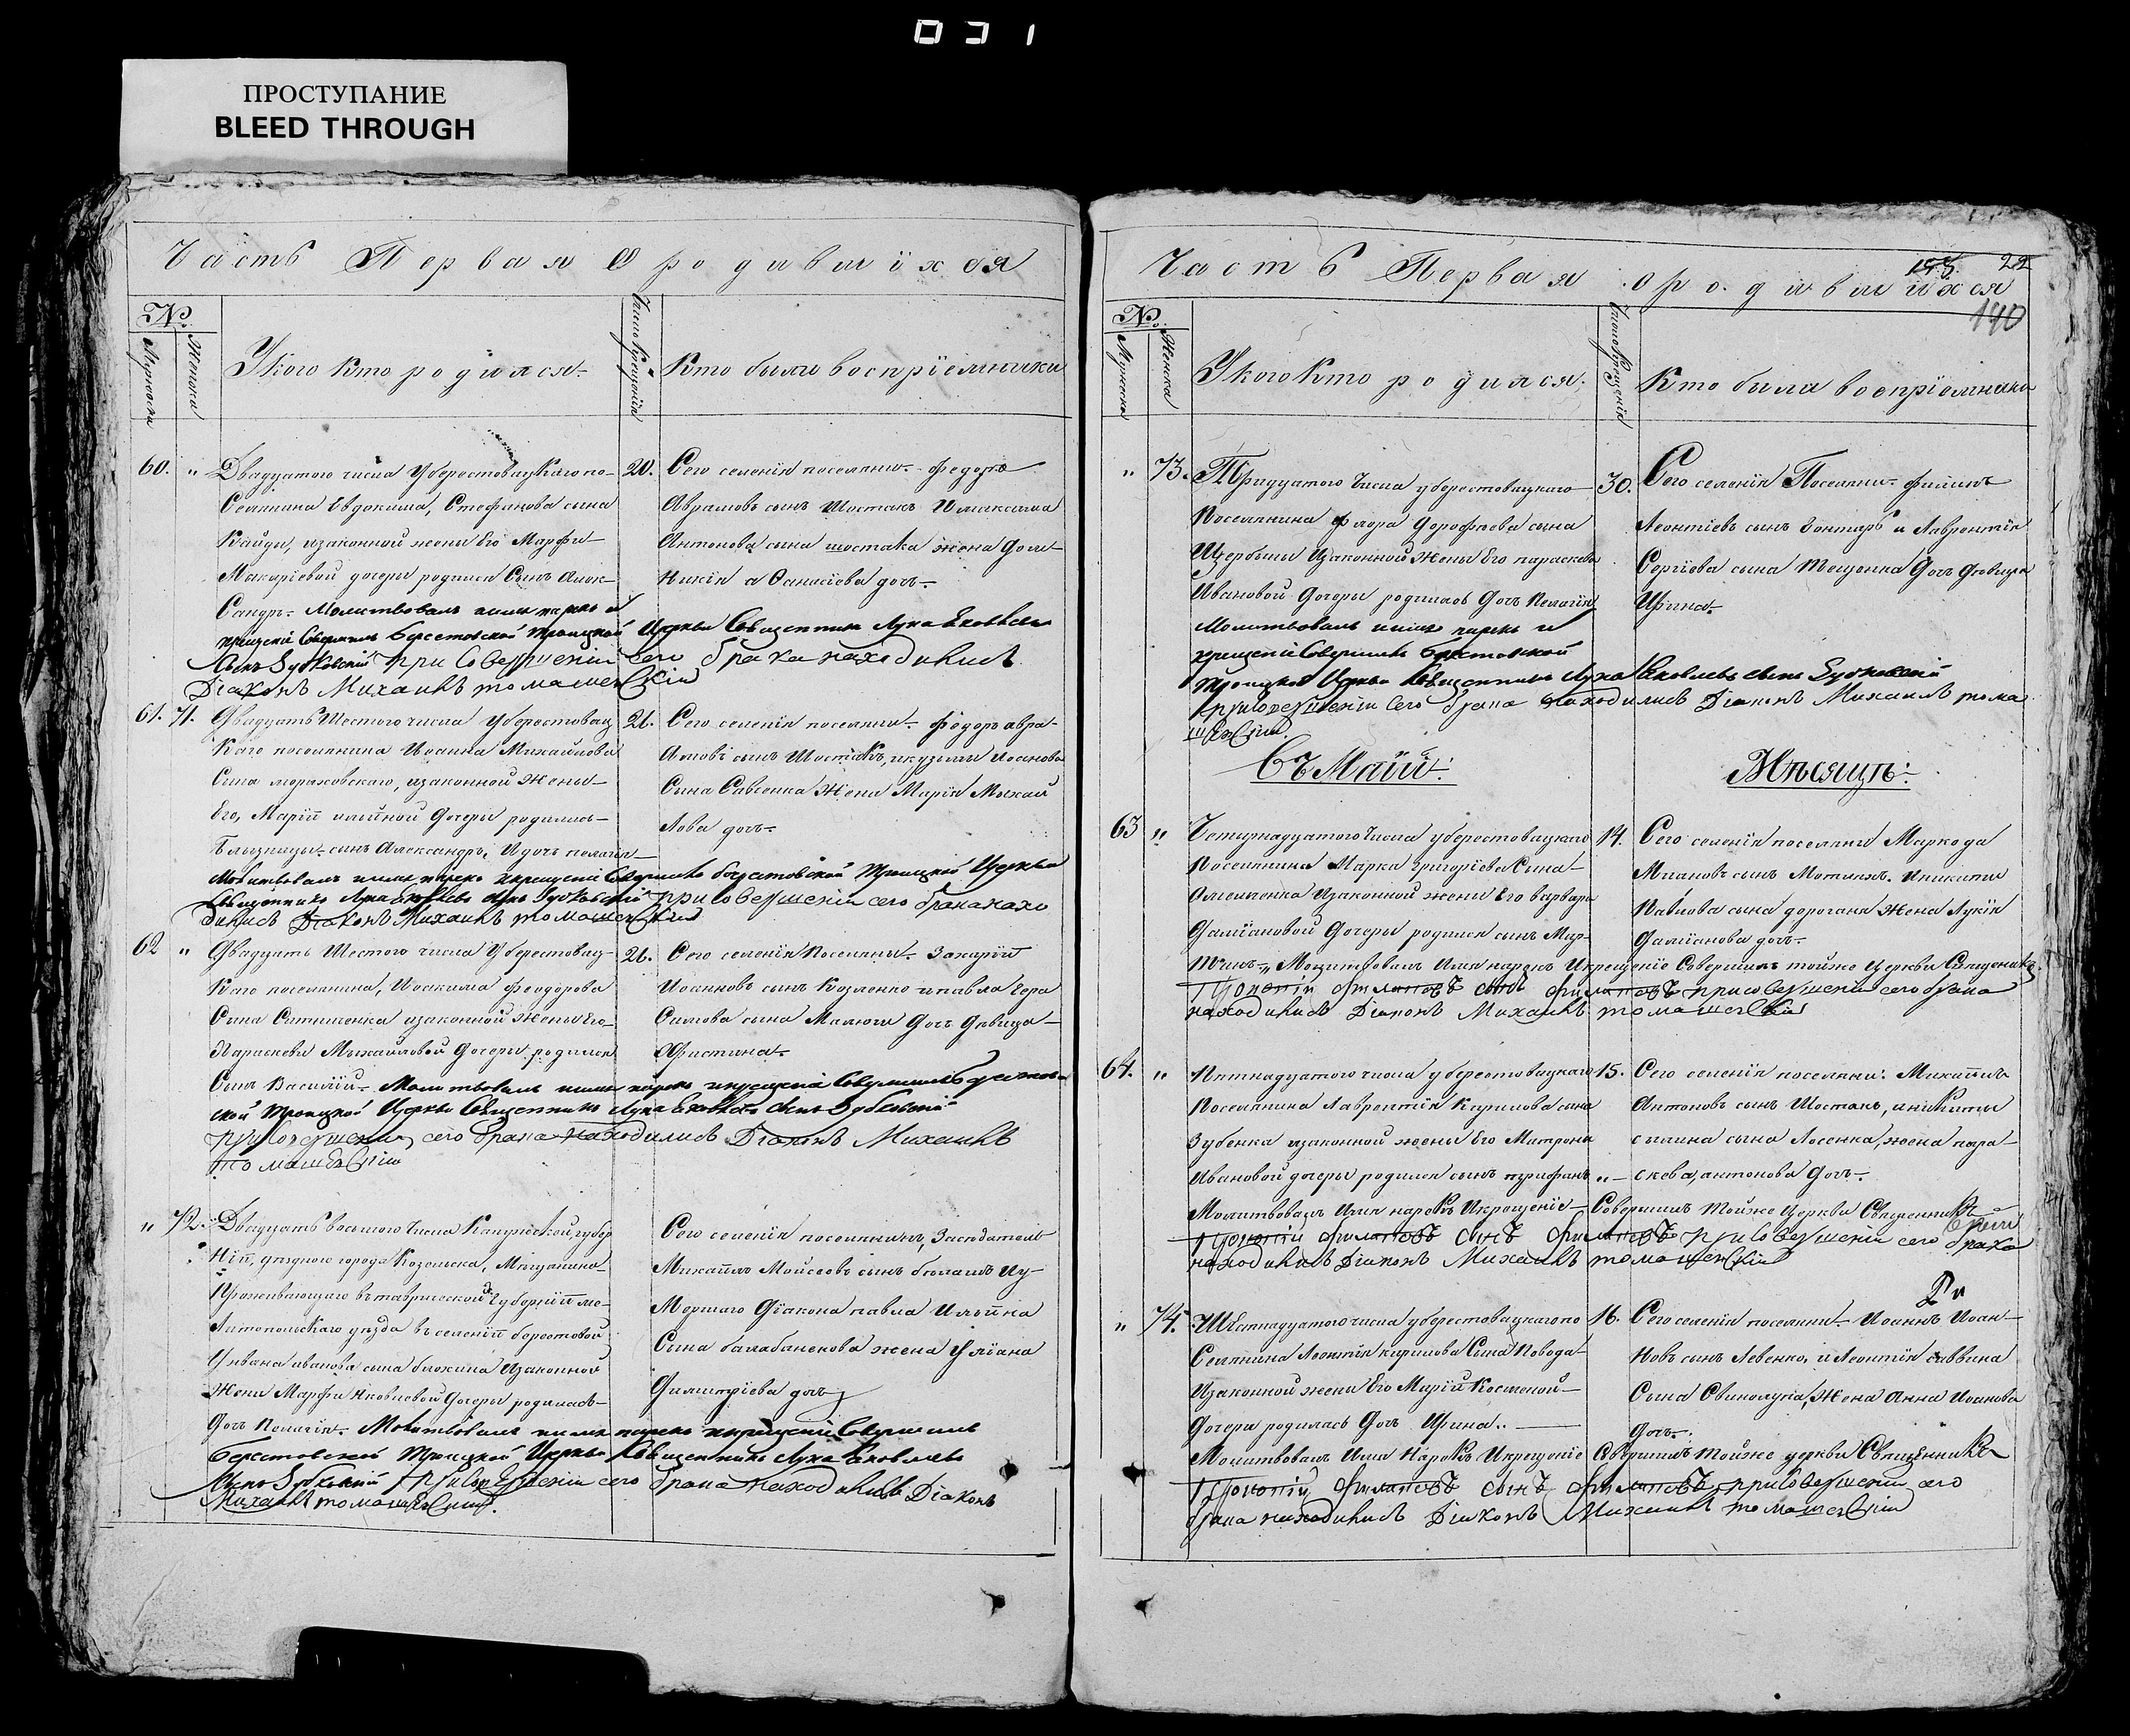 031
ПРОСТУПАНИЕ
BLEED THROUGH
Часть Первая О родившихся
№.
Мужеска
Женска
У кого кто родился.
Число крещенія
Кто были воспріемники
60. " Двадцятого числа У берестовацкаго по-
селянина Евдокима, Стефанова сына
Кайды, изаконной жены Его Марфы
Макаріевой дочеры родился Сынъ Алек-
Сандръ. Молитвовалъ имя нареклъ и
крещеніе Совершилъ Берестовской Троицкой Церкви Священникъ Лука Яковлевъ
Сынъ Зубковскій при Совершеніи сего брака находились
Діаконъ Михаилъ томашевскій
20. Сего селенія поселяни- Федоръ
Аврамовъ сынъ Шостакъ И максима
Антонова сына шостака жена Доми-
Никія афанасіева дочъ
61. 71. Двадцять Шестого числа У берестовац
Каго поселянина Иоанна Михайлова
Сына мораховскаго, изаконной Жены
Его, Маріи илыйной Дочеры родились
Блызницы сынъ Александръ, И дочъ пелагія
Молитвовалъ имя нареклъ и крещеніе Совершилъ берестовской Троицкой Церкви
Священникъ Лука Яковлевъ сынъ Зубковскій при Совершеніи сего брака нахо
дились Діаконъ Михаилъ томашевскій
26. Сего селенія поселяни- Федоръ авра-
амовъ сынъ Шостакъ, и кузьмы Иоанова
Сына Савченка Жена Марія Михай
лова дочъ
62 " Двадцять Шестого числа У берестовац-
Каго поселянина, Иоакима Феодорова
Сына Ситниченка изаконной Жены Его
Параскевы Михайловой Дочеры родился
Сынъ Василій. Молитвовалъ имя нареклъ и крещеніе Совершилъ Берестов-
ской Троицкой Церкви Священникъ Лука Яковлевъ сынъ Зубковскій
при совершеніи сего брака находились Діаконъ Михаилъ
томашевскій
26. Сего селенія Поселяны- Захарій
Иоанновъ сынъ Козленко и павла Гера
Симова сына Малюги Дочъ Дѣвица
Фистина
" 72. Двадцять восьмого Числа Калужской губер
Ніи, уѣздного города Козельска, Мѣщанина
Проживающаго въ таврической Губерніи ме-
Литопольскаго уѣзда въ селеніи берестовой
У ивана иванова сына блохина Изаконной
Жены Марфы Яковлевой Дочеры родилась
Дочъ Пелагія. Молитвовалъ имя нареклъ и крещеніе Совершилъ
Берестовской Троицкой Церкви Священникъ Лука Яковлевъ
Сынъ Зубковскій при совершеніи сего брака находились Діаконъ
Михаилъ томашевскій.
Сего селенія поселянинъ, Засѣдатель
Михаилъ Мойсеевъ сынъ и у-
Мершаго Діакона павла Ильина
Сына балабаненкова жена Уліана
Димитріева дочъ
Часть Первая о родившихся
22
140
№.
Мужеска
Женска
У кого Кто родился.
Число Крещенія
Кто были воспріемники
" 73. Тридцятого Числа у берестовацкаго
Поселянина Флора Дорофѣева сына
Щербыны Изаконной Жены Его параскева
Ивановой Дочеры родилась Дочъ Пелагія
Молитвовалъ имя нареклъ и
крещеніе Совершилъ Берестовской
Троицкой Церкви Священникъ Лука Яковлевъ сынъ Зубковскій
при совершеніи сего брака находились Діаконъ Михаилъ тома
шевскій.
30. Сего селенія Поселяни- филипъ
Леонтіевъ сынъ Бонтаръ и Лаврентія
Сергіева сына Тещенка Дочъ Дѣвица
Ирина.
Въ Маіи: Мѣсяцъ:
63 " Четирнадцятого Числа у берестовацкаго
Поселянина Марка Григоріева Сына
Омелченка Изаконной жены Его варвара
Даміановой Дочеры родился сынъ Мар-
тинъ. Молитвовалъ Имя нареклъ И крещеніе Совершилъ тойже Церкви Священикъ
Прокопій Филиповъ сынъ Филиповъ при совершеніи сего брака
находились Діаконъ Михаилъ томашевскій
14. Сего селенія поселяны Марко да
Міановъ сынъ Мотляхъ. И никиты
Павлова сына дорогана Жена Лукія
Даміанова дочъ
64. " Пятнадцятого числа у берестовацкаго
Поселянина Лаврентія Кирилова сына
Зубенка изаконной жены Его Матроны
Ивановой дочеры родился сынъ трифанъ
Молитвовалъ Имя нареклъ И крещеніе Совершилъ тойже Церкви Священникъ
Прокопій Филиповъ Сынъ Филиповъ при Совершеніи сего брака
находились Діаконъ Михаилъ томашевскій
15. Сего селенія поселяны: Михаилъ
Антоновъ сынъ Шостакъ, и никиты
сына Лосенка, жена пара-
скева, антонова Дочъ
" 74. Шѣстнадцятого числа у берестовацкаго по
Селянина Леонтія кирилова Сына Повода
Изаконной жены Его Маріи Костевой
Дочеры родилась Дочъ Ирина.
Молитвовалъ Имя Нареклъ И крещение Совершилъ тойже церкви Священникъ
Прокопій Филиповъ сынъ Филиповъ при совершеніи сего
брака находились Діаконъ Михаилъ томашевскій
16. Сего селенія поселяны- Иоаннъ Иоан-
новъ сынъ Левенко, и Леонтія саввина
Сына Свинолупа, Жена Анна Иоанова
Дочъ.